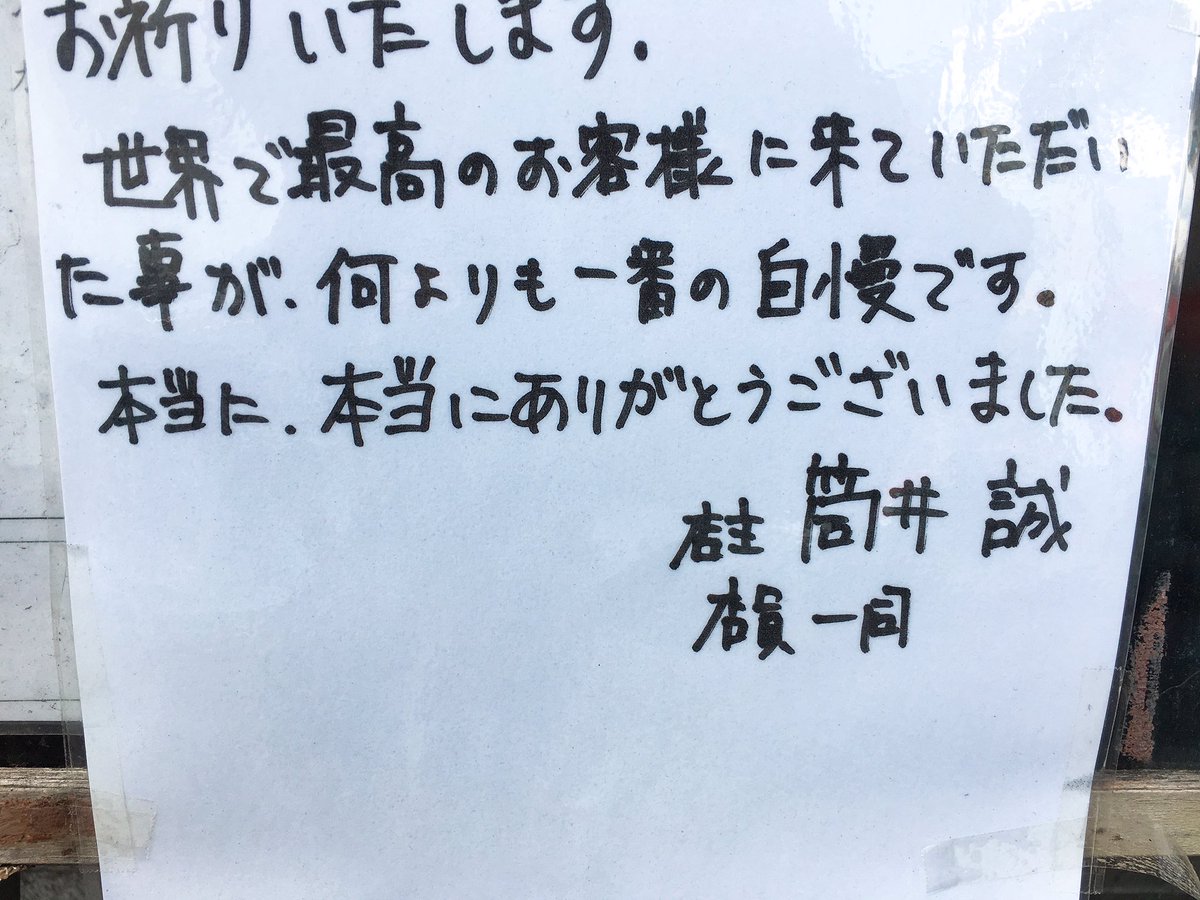 お祈りいたします.
世界で最高のお客様に来ていただい
た事が、何よりも一番の自慢です.
本当に、本当にありがとうございました.
店主 筒井 誠
店員 一同